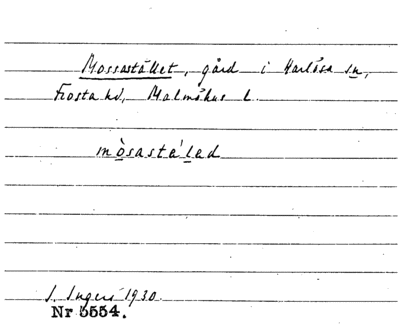 Mossastället, gård i Harlösa sn,
Frosta hd, Malmöhus l.
mòsastá'lad
I. Ingers 1930.
Nr 5554.